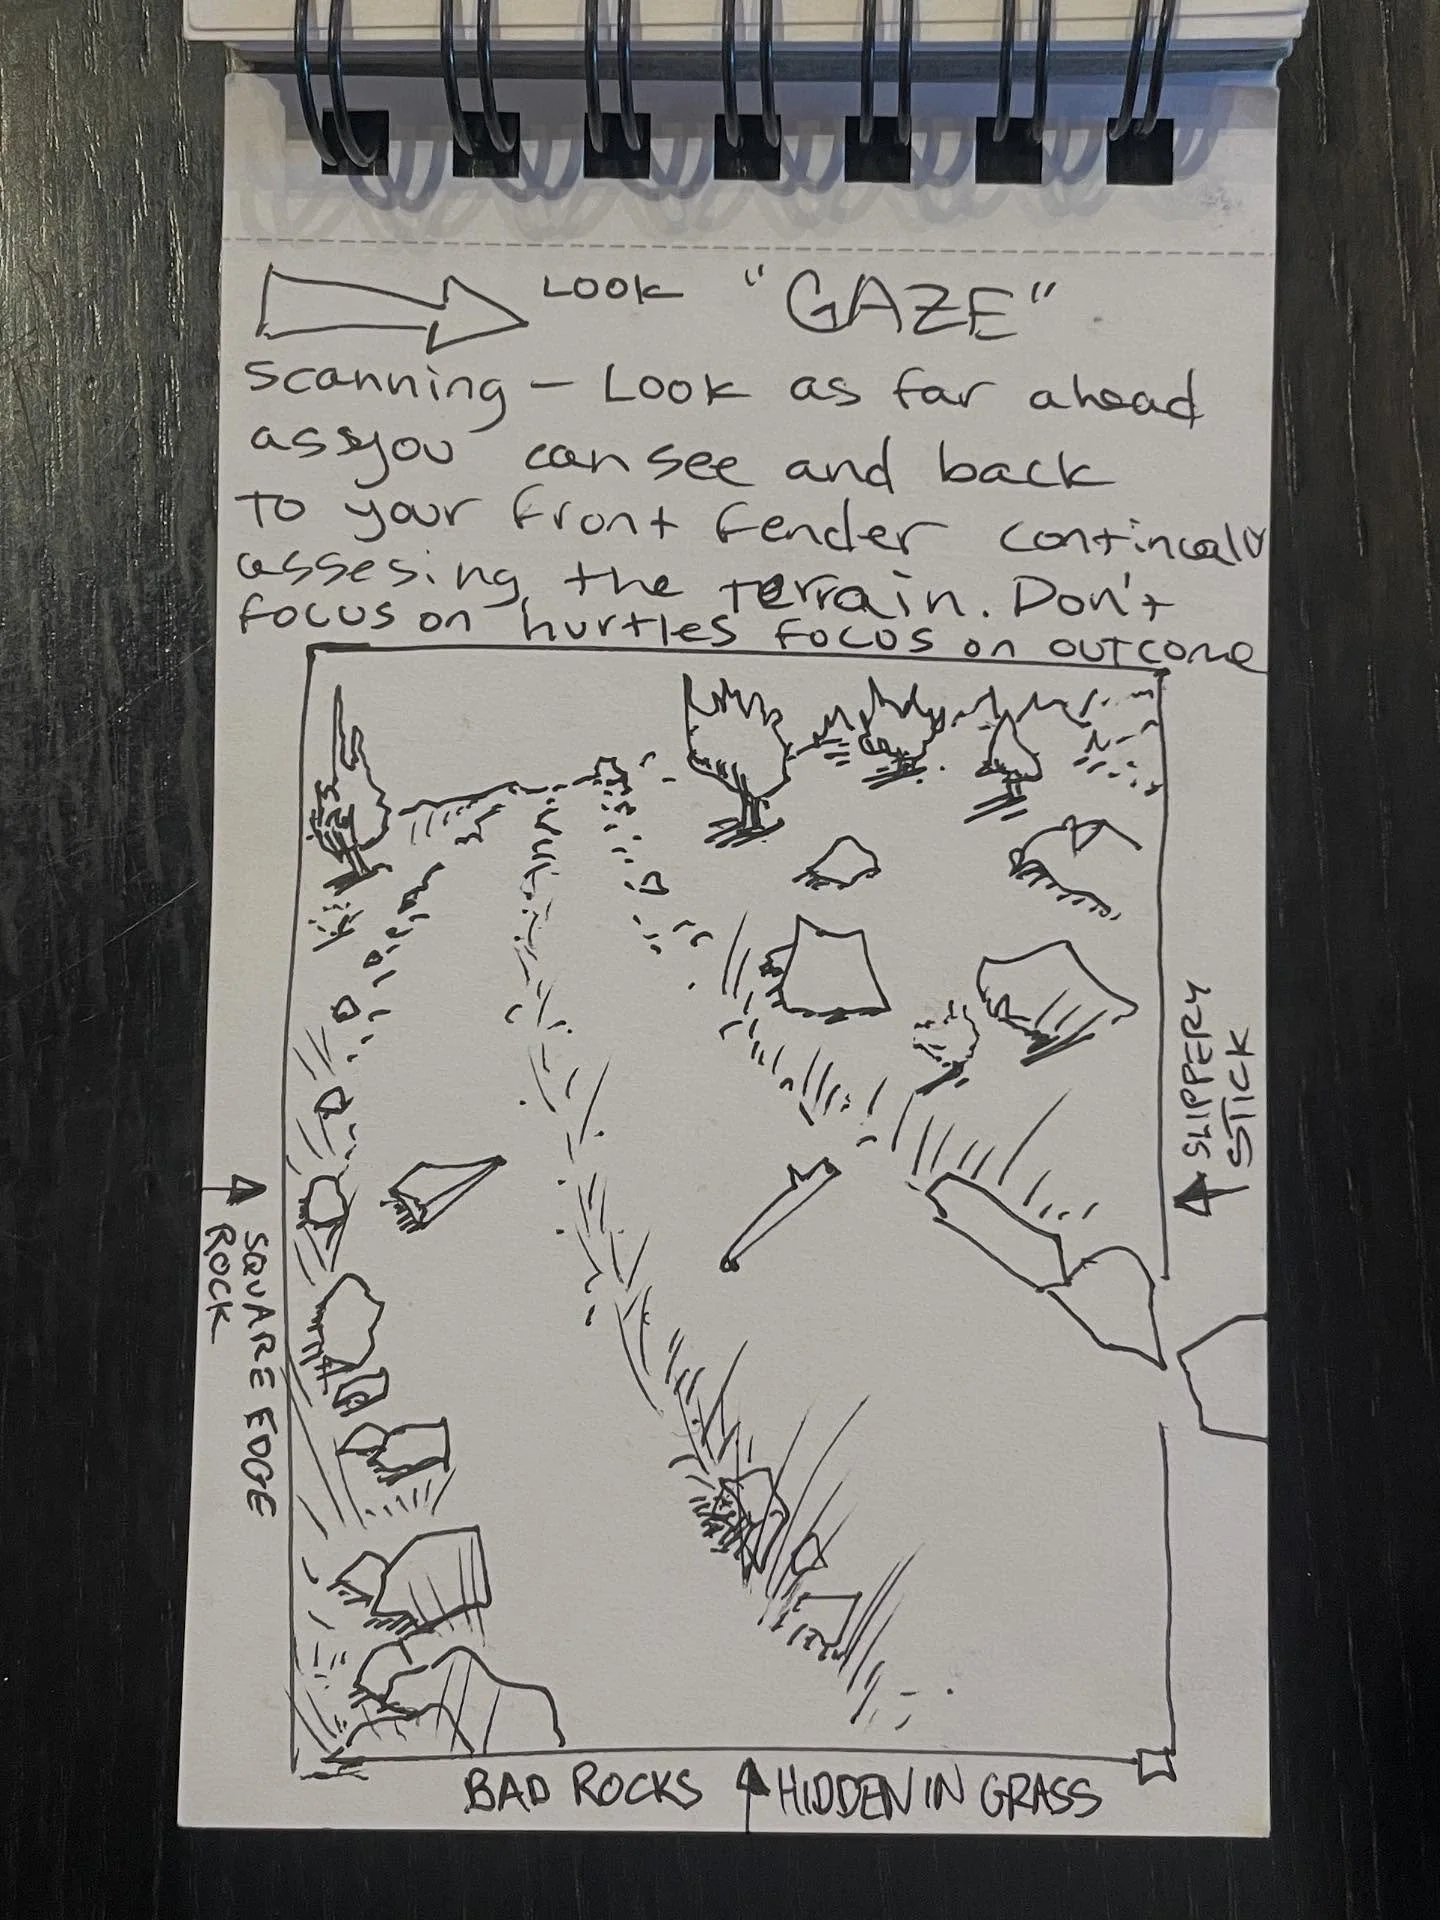 LOOK "GAZE"
Scanning - Look as far ahead
as you can see and back
To your front fender continualy
assesing the Terrain. Don't
focus on hurtles focus on outcome
SLIPPERY
STICK
SQUARE EDGE
ROCK
BAD ROCKS HIDDEN IN GRASS